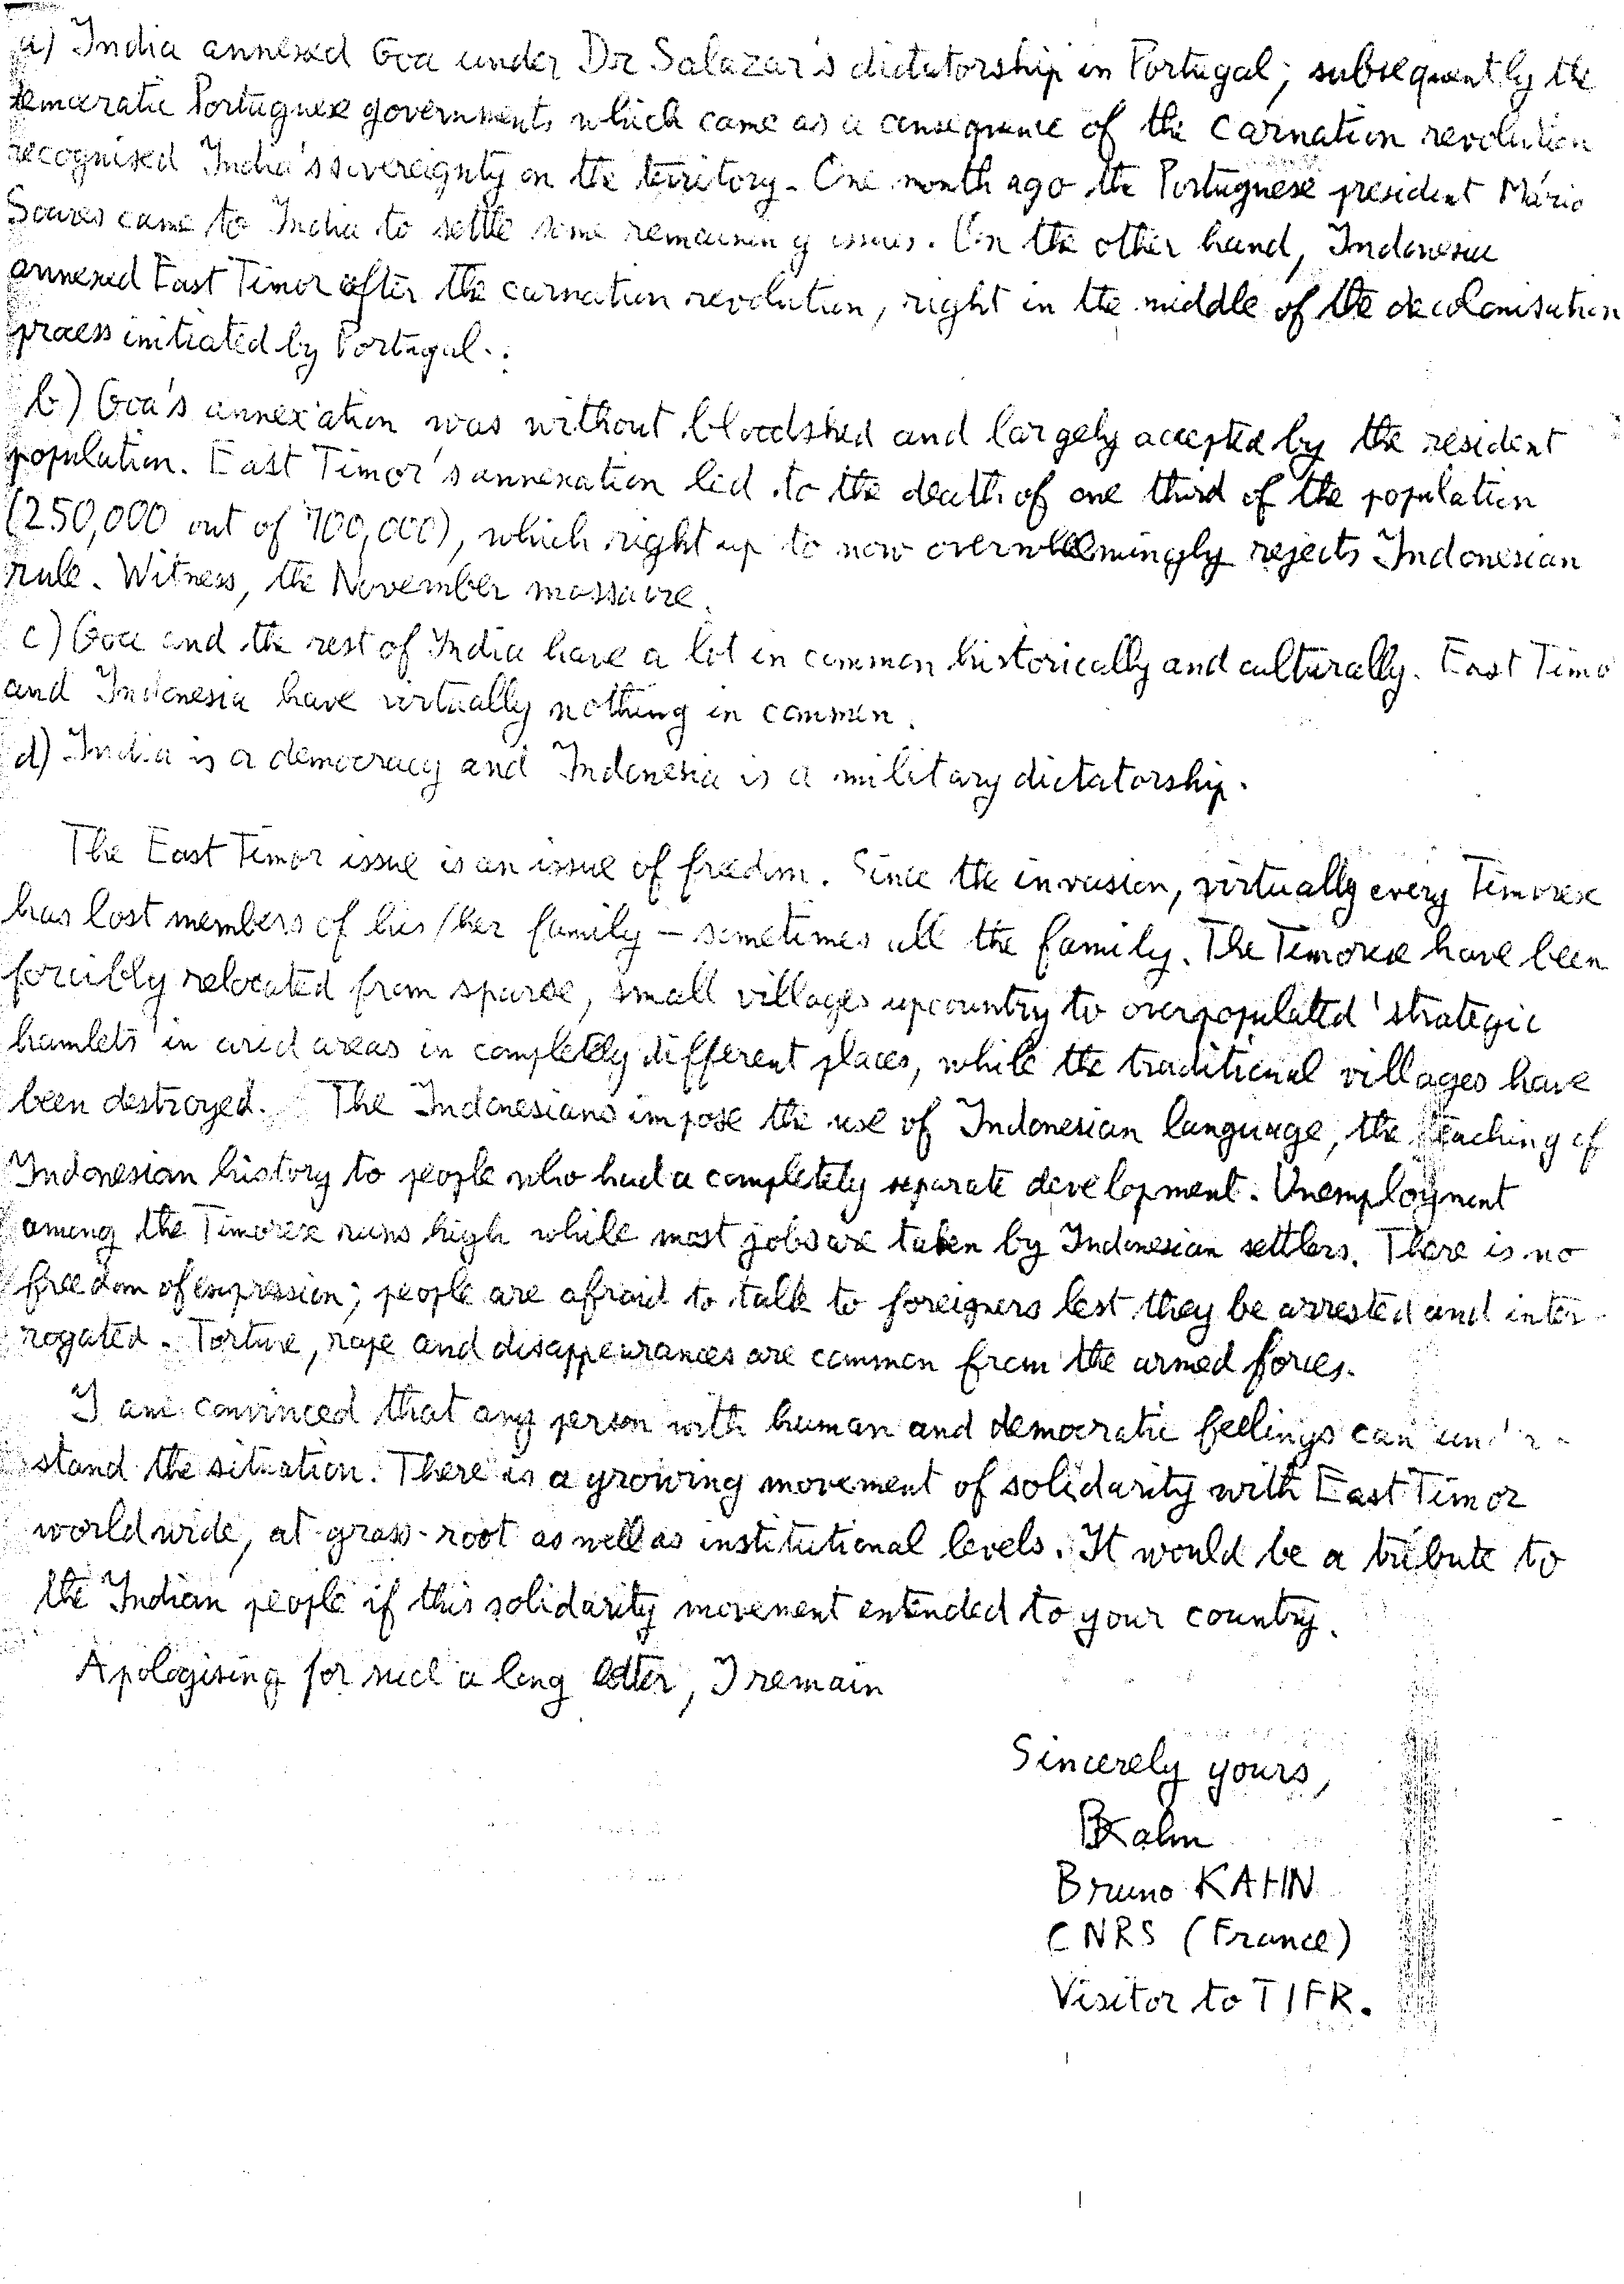 a) India annexed Goa under Dr Salazar's dictatorship in Portugal; subsequently the
democratic Portuguese governments which came as a consequence of the carnation revolution
recognised India's sovereignty on the territory. One month ago the Portuguese president Mário
Soares came to India to settle some remaining issues. On the other hand, Indonesia
annexed East Timor after the carnation revolution, right in the middle of the decolonisation
process initiated by Portugal.
b) Goa's annexation was without bloodshed and largely accepted by the resident
population. East Timor's annexation led to the death of one third of the population
(250,000 out of 700,000), which right up to now overwhelmingly rejects Indonesian
rule. Witness, the November massacre.
c) Goa and the rest of India have a lot in common historically and culturally. East Timo
and Indonesia have virtually nothing in common.
d) India is a democracy and Indonesia is a military dictatorship.
The East Timor issue is an issue of freedom. Since the invasion, virtually every Timorese
has lost members of his/her family – sometimes all the family. The Timorese have been
forcibly relocated from sparse, small villages upcountry to overpopulated 'strategic
hamlets' in arid areas in completely different places, while the traditional villages have
been destroyed. The Indonesians impose the use of Indonesian language, the teaching of
Indonesian history to people who had a completely separate development. Unemployment
among the Timorese runs high while most jobs are taken by Indonesian settlers. There is no
freedom of expression; people are afraid to talk to foreigners lest they be arrested and inter-
rogated. Torture, rape and disappearances are common from the armed forces.
I am convinced that any person with human and democratic feelings can under-
stand the situation. There is a growing movement of solidarity with East Timor
worldwide, at grass-root as well as institutional levels. It would be a tribute to
the Indian people if this solidarity movement extended to your country.
Apologising for such a long letter, I remain
Sincerely yours,
BKahn
Bruno KAHN
CNRS (France)
Visitor to TIFR.